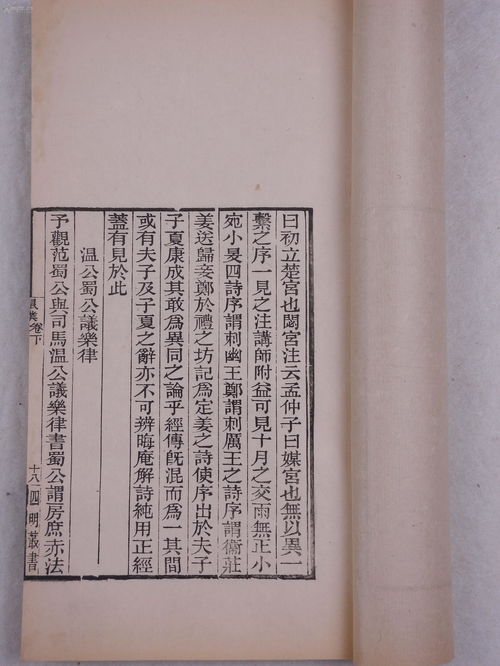 曰初立楚宮也閟宮注云孟仲子曰媒宮也無以異一
繫之序一見之注講師附益可見十月之交雨無正小
宛小旻四詩序謂刺幽王鄭謂刺厲王之詩序謂衞莊
姜送歸妾鄭於禮之坊記爲定姜之詩使序出於夫子
子夏康成其敢爲異同之論乎經傳旣混而爲一其間
或有夫子及子夏之辭亦不可辨晦庵解詩純用正經
蓋有見於此
溫公蜀公議樂律
予觀范蜀公與司馬溫公議樂律書蜀公謂房庶赤法
卷下
十八
四明叢書